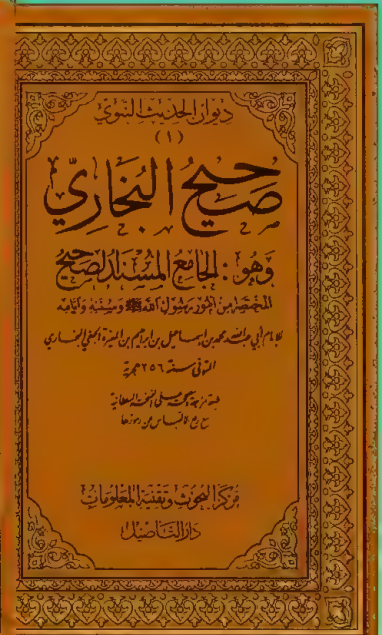 ديوان الحديث النبوي
(١)
صحيح البخاري
وهو: الجامع المسند الصحيح
المختصر من أمور رسول الله ﷺ وسننه وأيامه
للإمام أبي عبد الله محمد بن إسماعيل بن إبراهيم بن المغيرة الجعفي البخاري
المتوفى سنة ٢٥٦ هجرية
طبعة مزيدة على النسخة السلطانية
مع رموزها
مركز البحوث وتقنية المعلومات
دار التأصيل